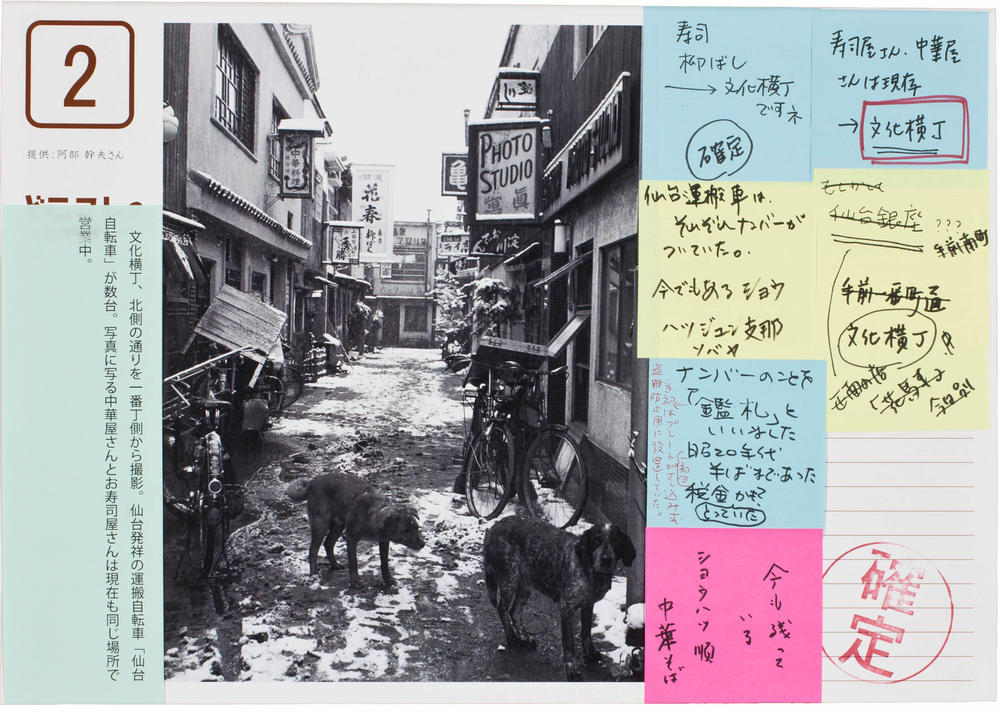 2
提供:阿部 幹夫さん
文化横丁、北側の通りを一番丁側から撮影。仙台発祥の運搬自転車「仙台
自転車」が数台。写真に写る中華屋さんとお寿司屋さんは現在も同じ場所で
営業中。
中華料理
花春
PHOTO
STUDIO
寿司
柳ばし
→文化横丁
ですネ
確定
寿司屋さん、中華屋
さんは現存
→文化横丁
仙台運搬車は、
それぞれナンバーが
ついていた。
今でもある ショウ
ハツジュン 支那
ソバヤ
仙台銀座
???
手前南町
手前 一番町通
文化横丁
ナンバーのことを
「鑑札」と
いいました
昭20年代
半ばまであった
税金かぜ
とっていた
今も残って
いる
ショウハツ順
中華そば
確定